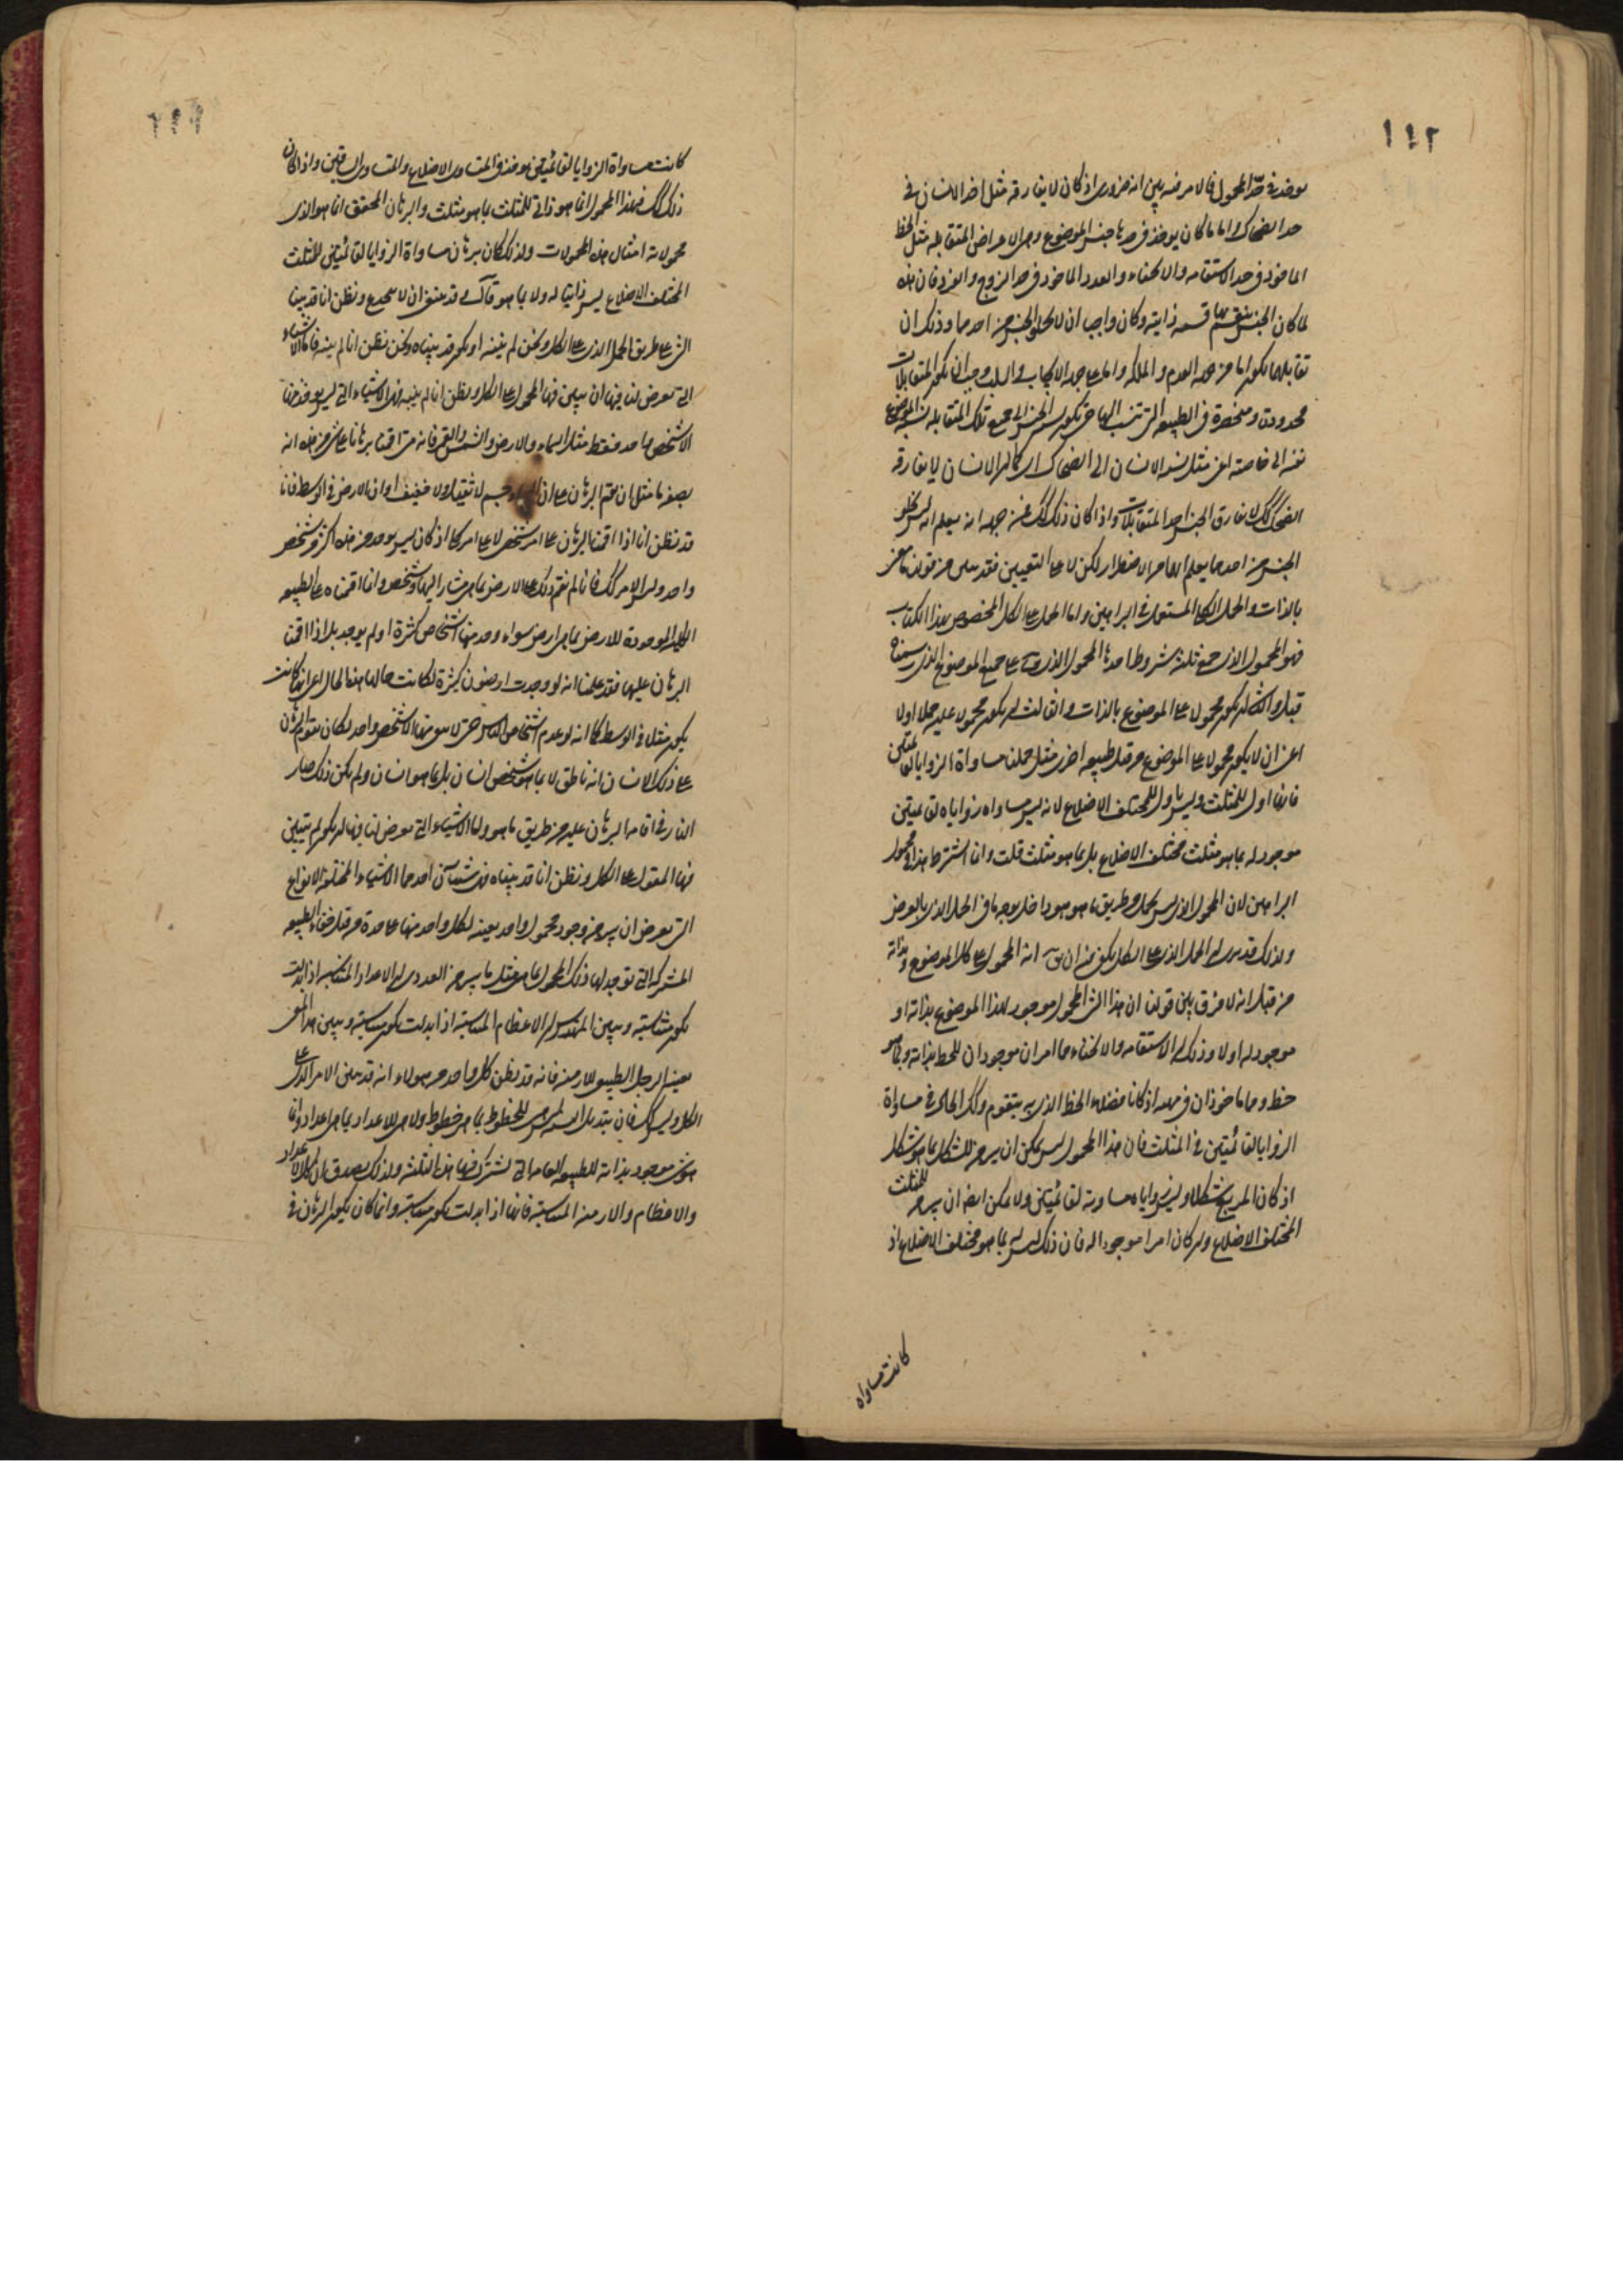 ١١٢
يوخذ في حد المحمول فالامر فيه بين انه ضروري اذ كان لا يفارقه مثل اخذ الانسان في
حد الضحاك واما ما كان يوخذ في حدها جنس الموضوع وهي الاعراض المتقابله مثل الخط
الماخوذ في حد الاستقامه والانحناء والعدد الماخوذ في حد الزوج والفرد فان هذه
لما كان الجنس ينقسم بها قسمه ذاتيه وكان واجبا ان لا يخلو الجنس من احدهما وذلك ان
تقابلهما يكون اما من جهه العدم والملكه واما على جهه الايجاب والسلب وجب ان يكون المتقابلات
محدوده ومنحصره في الطبيعه التي تنسب اليها حتى يكون نسبه الجنس الى جميع تلك المتقابله نسبه الموضوع
نفسه الى خاصته اعني مثل نسبه الانسان الى الضحاك اي كما ان الانسان لا يفارقه
الضحك كك لا يفارق الجنس احد المتقابلات واذا كان ذلك كك فمن جهه انه يعلم انه ليس يخلو
الجنس من احدهما يعلم انهما من الاضطرار لكن لا على التعيين فقد تبين من قولنا ما معنى
بالذات والحمل الكلي المستعمل في البراهين واما الحمل على الكل المخصوص بهذا الكتاب
فهو المحمول الذي جمع ثلثه شروط احدها المحمول الذي يق على جميع الموضوع الذي رسمناه
قبل والثاني ان يكون محمولا على الموضوع بالذات والثالث ان يكون محمولا عليه حملا اولا
اعني ان لا يكون محمولا على الموضوع من قبل طبيعه اخرى مثل حملنا مساواة الزوايا لقائمتين
فانها اول للمثلث وليس باول للمختلف الاضلاع لانه ليس مساواه زواياه لقائمتين
موجود له بما هو مثلث مختلف الاضلاع بل بما هو مثلث قلت وانما اشترط هذا في محمول
البراهين لان المحمول الذي ليس يحمل من طريق ما هو هو داخل بوجه ما في الحمل الذي بالعرض
ولذلك قد يرى ان الحمل الذي على الكل يكفي فيه ان يق انه المحمول على كل الموضوع وبذاته
من قبل انه لا فرق بين قولنا ان هذا الشي المحمول موجود لهذا الموضوع بذاته او
موجود له اولا وذلك ان الاستقامه والانحناء هما امران موجودان للخط بذاته وبما هو
خط وهما ماخوذان في حده اذ كانا فصلا الخط الذي به يتقوم وكك الحال في مساواة
الزوايا لقائمتين في المثلث فان هذا المحمول ليس يمكن ان يبرهن للشكل بما هو شكل
اذ كان المربع شكلا وليس زواياه مساويه لقائمتين ولا يمكن ايضا ان يبرهن للمثلث
المختلف الاضلاع وان كان امرا موجودا له فان ذلك ليس له بما هو مختلف الاضلاع اذ
كانت مساواه
كانت مساواة الزوايا لقائمتين توخذ في المتساوى الاضلاع والمتساوى الساقين واذا كان
ذلك كك فهذا المحمول انما هو ذاتي للمثلث بما هو مثلث والبرهان المحقق انما هو الذي
محمولاته امثال هذه المحمولات ولذلك كان برهان مساواة الزوايا لقائمتين للمثلث
المختلف الاضلاع ليس ذاتيا له ولا بما هو قال وقد ينبغي ان لا نخدع ونظن انا قد بينا
الشي على طريق الحمل الذي على الكل ونحن لم نبينه او يكون قد بيناه ونحن نظن انا لم نبينه فاما الاشياء
التي تعرض لنا فيها ان نبين فيها المحمول على الكل ونظن انا لم نبينه فهي الاشياء التي ليس يوجد منها
الا شخص واحد فقط مثل السماء والارض والشمس والقمر فانه متى اقمنا برهانا على شي من هذه انه
بصفه ما مثل ان نقيم البرهان على ان السماء جسم لا ثقيل ولا خفيف او ان الارض في الوسط فانا
قد نظن انا اذا اقمنا البرهان على امر شخص لا على امر كلي اذ كان ليس يوجد من هذه اكثر من شخص
واحد وليس الامر كك فانا لم نقم ذلك على الارض بما هي مشار اليها وشخص وانما اقمناه على الطبيعه
الكليه الموجودة للارض بما هي ارض سواء وجد منها اشخاص كثيرة او لم يوجد بل اذا اقمنا
البرهان عليها فقد علمنا انه لو وجدت ارضون كثيرة لكانت حالها هذا الحال اعني انها كانت
يكون مثلا في الوسط كما انه لو عدم اشخاص الناس حتى لا يبقى منها الا شخص واحد لكان يقوم البرهان
على ذلك الانسان انه ناطق لا بما هو شخص انسان بل بما هو انسان ولم يكن ذلك ضار
لنا في اقامه البرهان عليه من طريق ما هو واما الاشياء التي تعرض لنا فيها ان يكون لم نبين
فيها المقول على الكل ونظن انا قد بيناه فهي شيئان احدهما الاشياء المختلفه الانواع
التي يعرض ان يبرهن وجود محمول واحد بعينه لكل واحد منها على حدة من قبل خفاء الطبيعه
المشتركه التي توجد لها ذلك المحمول بما هي مثل ما يبرهن العددي ان الاعداد المتناسبه اذا ابدلت
تكون متناسبه ويبين المهندس ان الاعظام المتناسبه اذا ابدلت تكون متناسبه ويبين هذا المعنى
بعينه الرجل الطبيعي للازمنه فانه قد يظن كل واحد من هولاء انه قد بين الامر الذي على
الكل وليس كك فان تبديل النسبه ليس للخطوط بما هي خطوط ولا هي للاعداد بما هي اعداد وانما
هو شي موجود بذاته للطبيعه العامه التي تشترك فيها هذه الثلثه ولذلك يصدق ان كل الاعداد
والاعظام والازمنه المتناسبه فانها اذا ابدلت تكون متناسبه وانما كان يكون البرهان في